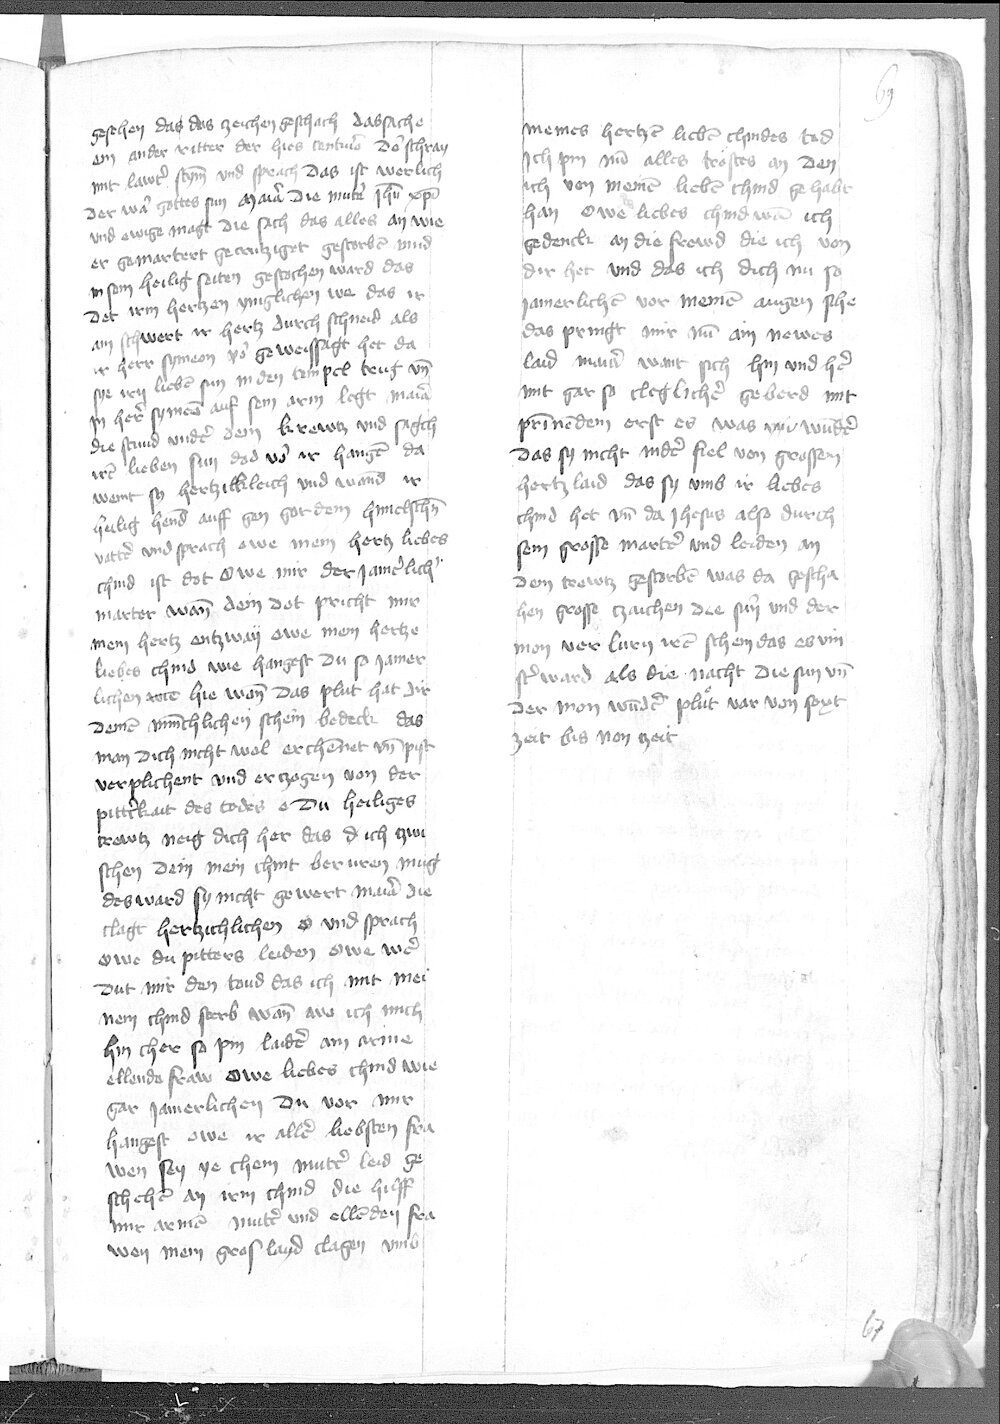 69
gesehen das das zeichen geschach das sache
ein ander ritter der hies centurio Do schray
mit lawtr̄ stym̄ vnd sprach Das ist werlich
Der war gottes sun Maria Die mutr̄ Jhū xpī
vnd ewige magt Die sach das alles an wie
er gemartert gecrutziget gestorbē vnnd
in sein heilig seiten gestochen ward das
Det irm hertzen yniglichen we das ir
ain schwert ir hertz durch schneid als
ir herr symeon vor geweissagt het da
sye irn liebē sun in den tempel trug vn̄
in her symeō auf sein arm legt maria
die stund vndr̄ dem krewtz vnd sagch
irē lieben sun dod vor ir hangē da
weint sy hertzikleich vnd wand ir
heilig hend auff gen got dem himelschn̄
vattr̄ vnd sprach owe mein hertz liebes
chind ist dot Owe mir der Jamerlichn̄
marter wan̄ dein dot pricht mir
mein hertz entzway owe mein hertze
liebes chind wie hangest Du so Jamer
lichen hie wan̄ Das plut hat dir
Deinē minchlichen schein bedeck das
man Dich nicht wol erchēnet vn̄ pist
verplichent vnd ertzogen von der
pittr̄kait des todes o Du heiliges
krewtz neig dich her das d ich tzwi
schen Dein mein chint beruren mug
des ward sy nicht gewert maria die
clagt hertzichlichen O vnd sprach
Owe du pitters leiden Owe wer
Dut mir den toud das ich mit mei
nem chind sterb wan̄ awo ich mich
hin cher so pin laidr̄ ain arme
ellende fraw Owe liebes chind wie
gar Jamerlichen Du vor mir
hangest owe ir allr̄ liebsten fra
wen sey ye chein mutr̄ leid ge
schehē an irm chind die hilff
mir armē mutr̄ vnd ellēden fra
wen mein gros layd clagen vmb
meines hertzē liebē chindes tod
Ich pin nū alles trostes an Den
ich von meinē liebē chind gehabt
han Owe liebes chind wan̄ ich
gedenck an die frewd die ich von
dir het vnd das ich dich nu so
Jamerlichē vor meinē augen sihe
das pringt mir nū ain newes
laid maria want sich hin vnd hēr
mit gar so cleglicher geberd mit
prinēdem erst es was wundr̄
Das sy nicht nidr̄ fiel von grossem
hertzlaid das sy vmb ir liebes
chind het vn̄ da Jhesus also durch
sein grosse martr̄ vnd leiden an
Dem krewtz gestorbē was da gescha
hen grosse tzaichen Die sun̄ vnd der
mon verlurn irē schein das es vin
str̄ ward als die nacht Die sun vn̄
Der mon wurdē plůt var von sext
zeit bis non zeit
67